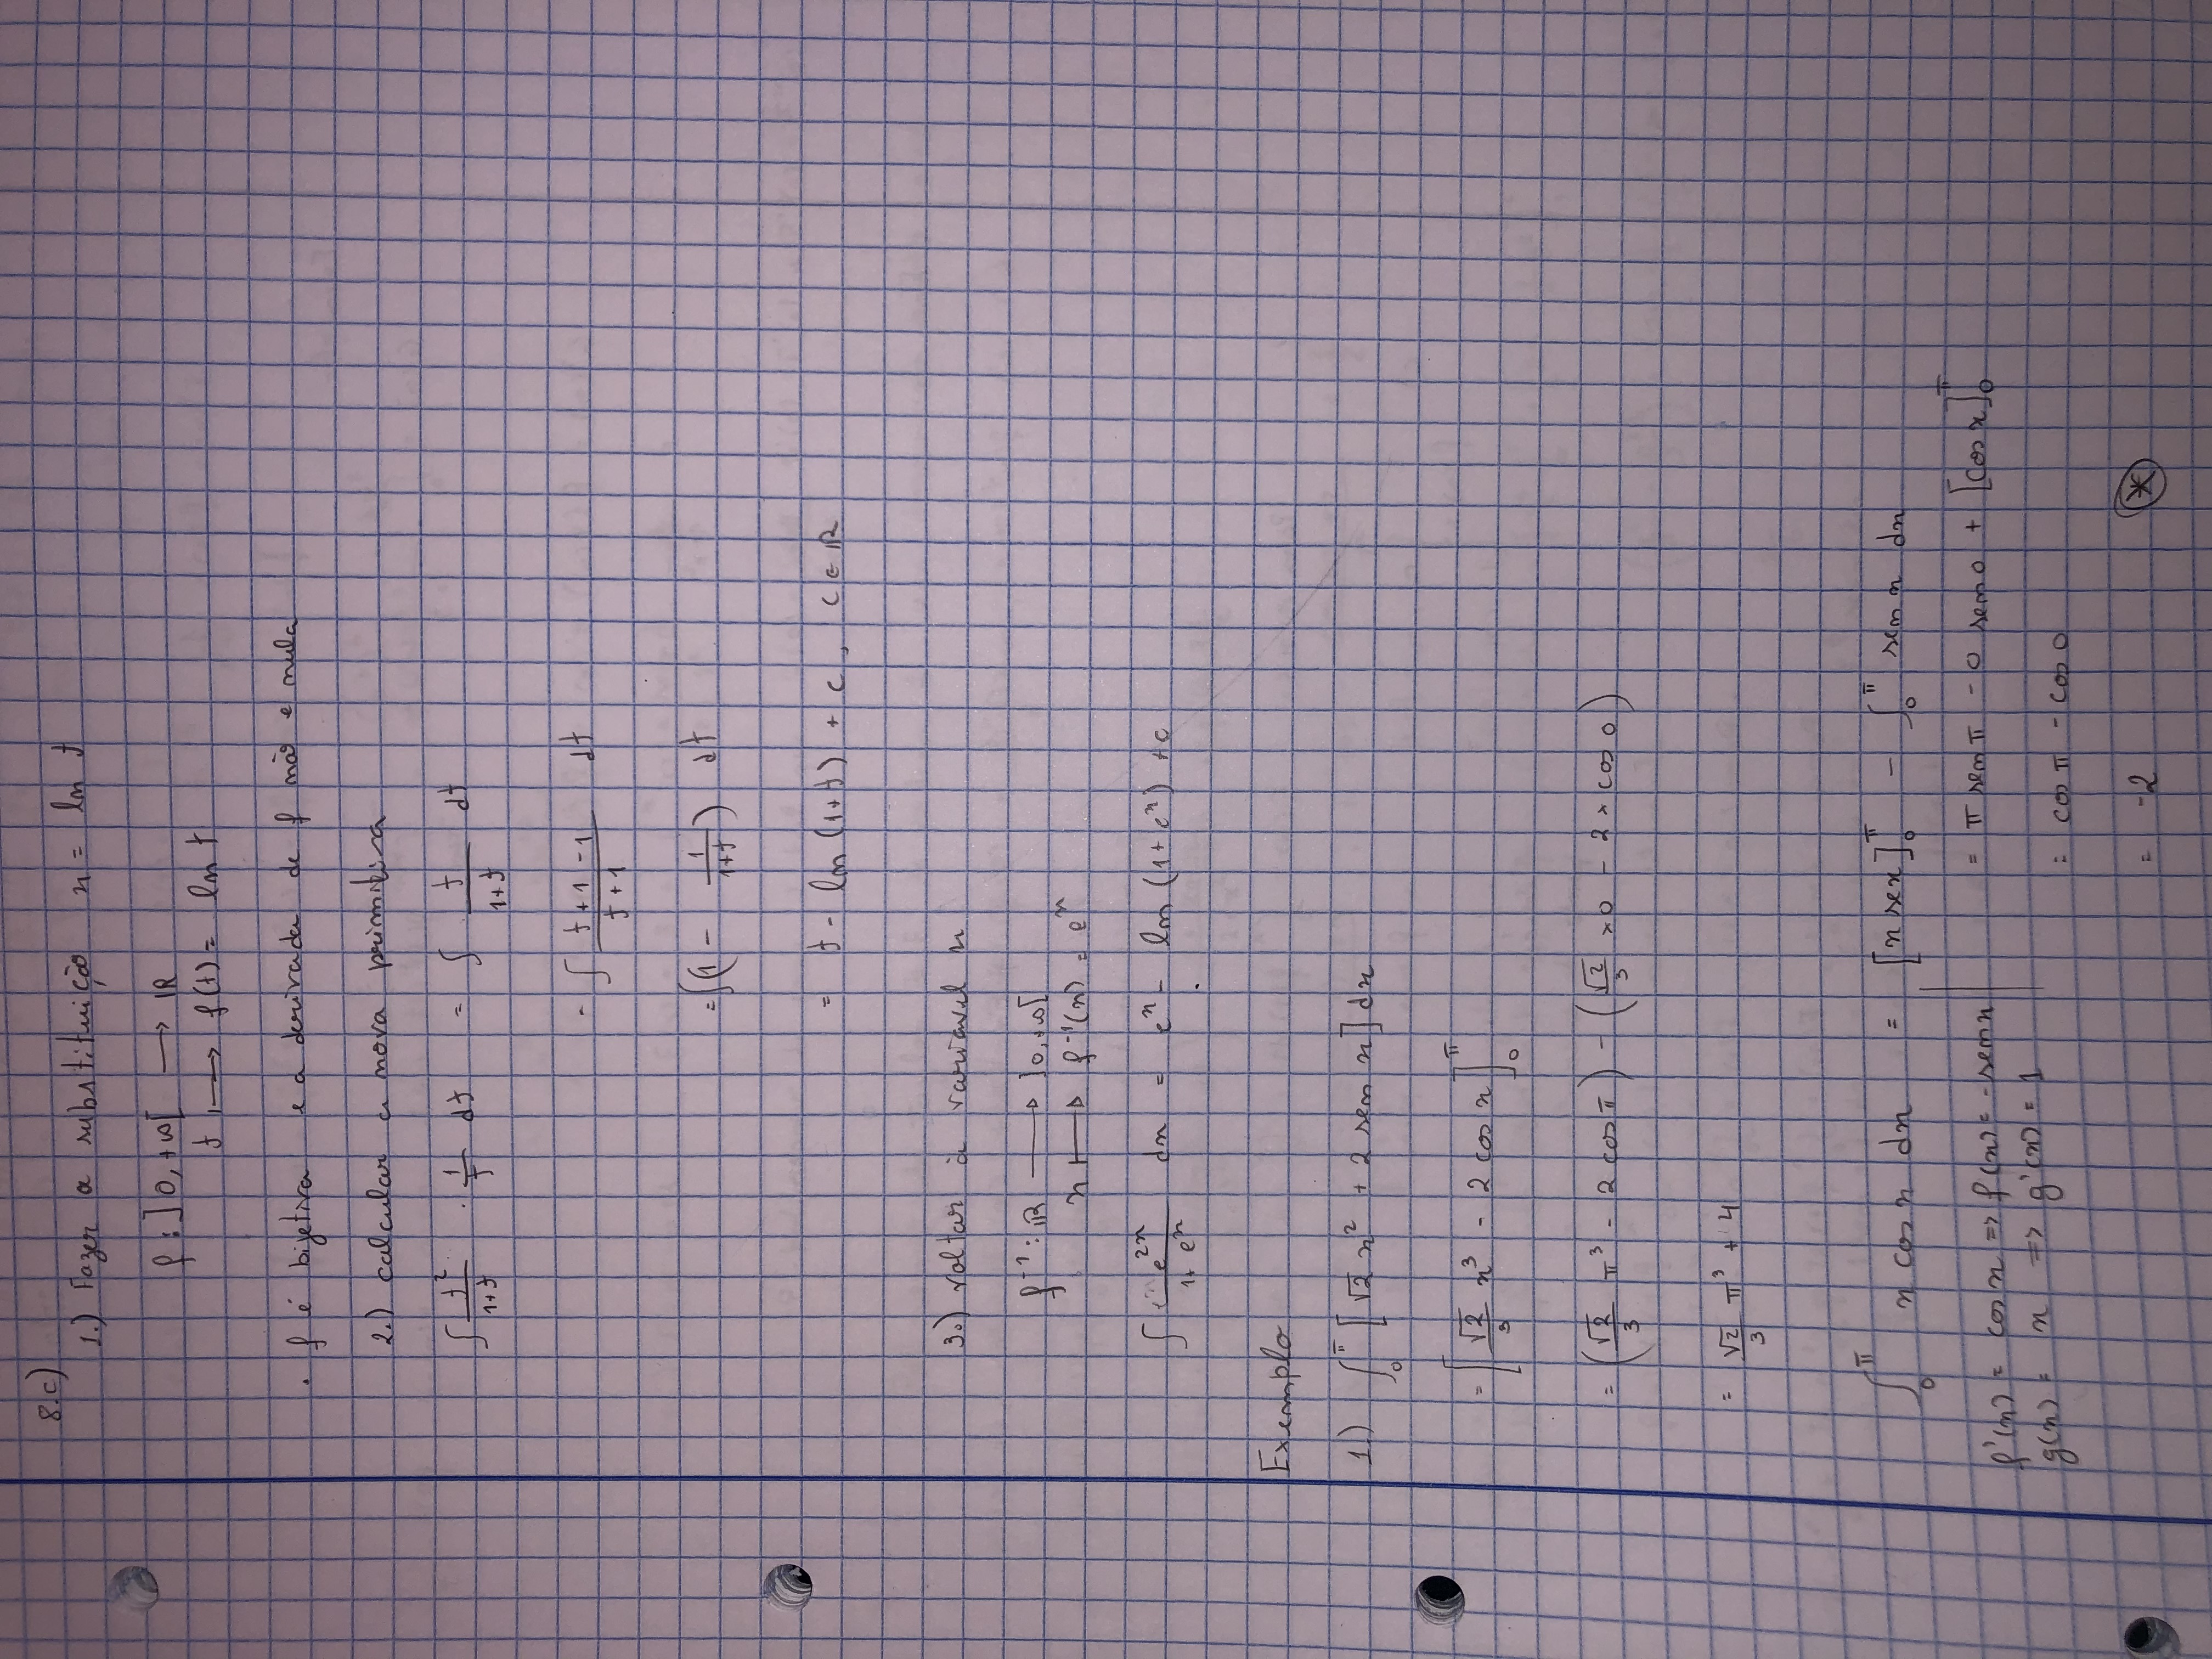 8.c)
1.) Fazer a substituição x = ln t
f : ]0, +∞[ ⟶ ℝ
t ⟼ f(t) = ln t
. f é bijetiva e a derivada de f não e nula
2.) calcular a nova primitiva
∫ t²/(1+t) · 1/t dt = ∫ t/(1+t) dt
= ∫ (t+1-1)/(t+1) dt
= ∫ (1 - 1/(1+t)) dt
= t - ln (1+t) + c, c ∈ ℝ
3.) voltar à variavel x
f⁻¹ : ℝ ⟶ ]0, +∞[
x ⟼ f⁻¹(x) = eˣ
∫ e²ˣ/(1+ eˣ) dx = eˣ - ln (1+ eˣ) + c
Exemplo
1.) ∫₀^π [√2 x² + 2 sen x] dx
= [√2/3 x³ - 2 cos x]₀^π
= (√2/3 π³ - 2 cos π) - (√2/3 × 0 - 2 × cos 0)
= √2/3 π³ + 4
∫₀^π x cos x dx = [x sex]₀^π - ∫₀^π sen x dx
f'(x) = cos x => f(x) = - sen x
= π sen π - 0 sen 0 + [cos x]₀^π
g(x) = x => g'(x) = 1
= cos π - cos 0
= -2 ⊛